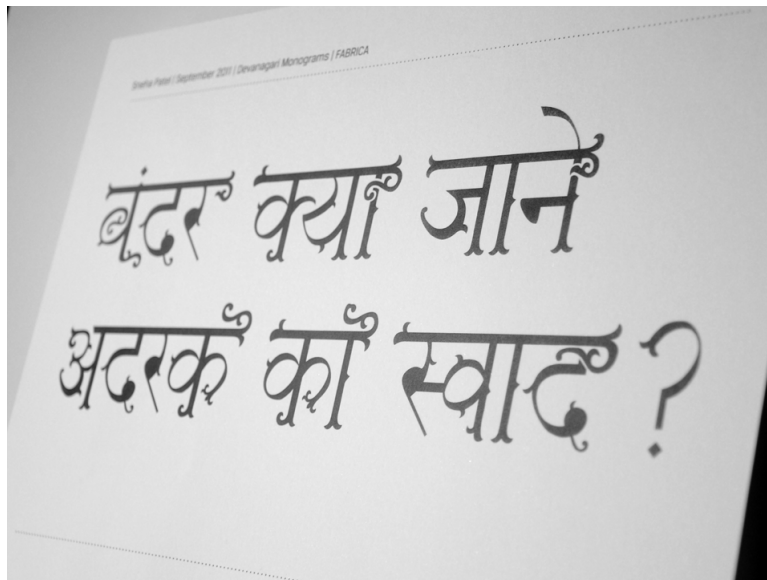 Sneha Patel | September 2011 | Devanagari Monograms | FABRICA
बंदर क्या जाने
अदरक का स्वाद ?